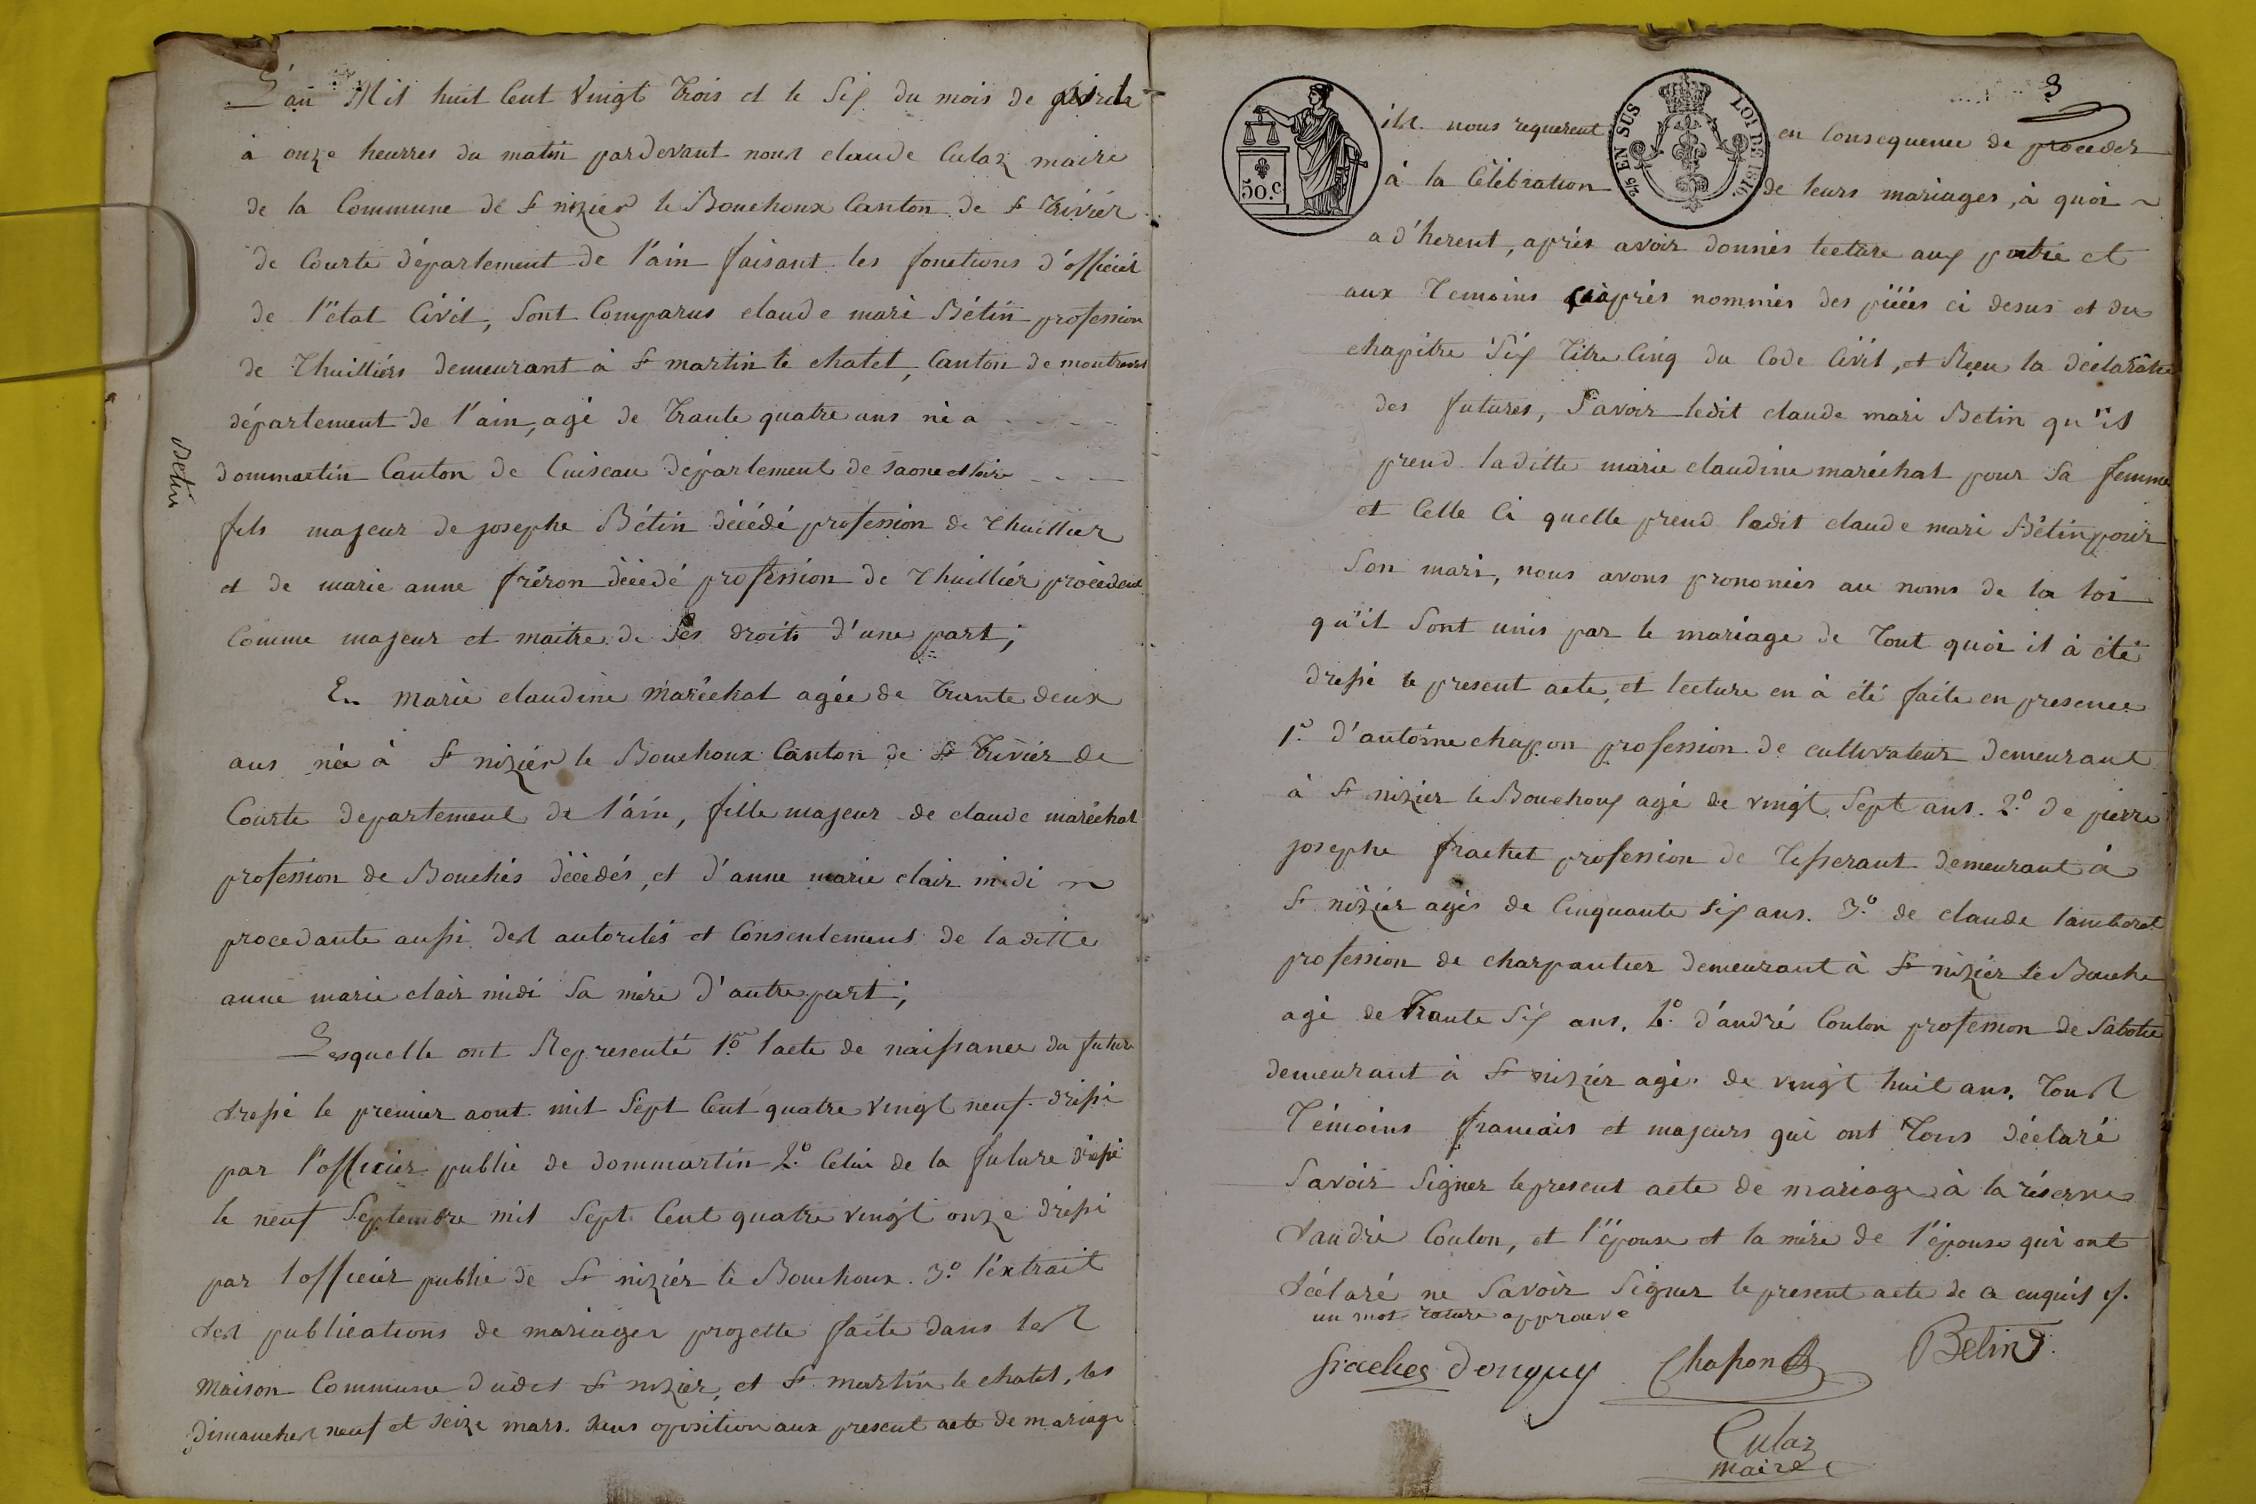 L'an Mil huit Cent Vingt Trois et le Six du mois de
à onze heurres du matin pardevant nous claude Culaz maire
de la Commune de St nizier le Bouchoux Canton de St Trivier
de Courte département de l'ain faisant les fonctions d'officiér
de l'état Civil, Sont Comparus claude mari Bétin profession
de Thuilliérs demeurant à St martin le chatel, Canton de montrevel
département de l'ain, agé de Trante quatre ans né a
dommartin Canton de Cuiseau département de saone et loire
Betin
fils majeur de josephe Bétin décédé profession de Thuillier
et de marie anne fréron décédé profession de Thuilliér procédent
Comme majeur et maitre de Ses droits d'une part;
Et marie claudine maréchal agée de Trante deux
ans née à St niziér le Bouchoux Canton de St Triviér de
Courte departement de l'ain, fille majeur de claude maréchal
profession de Bouchés décédés, et d'anne marie clair midi
procedante aussi des autorités et Consentement de laditte
anne marie clair midi Sa mére d'autre part;
Lesquelle ont Representé 1º. l'acte de naissance du futur
dressé le premier aout mil Sept Cent quatre vingt neuf. dréssé
par l'officier public de dommartin 2º. Celui de la future dréssé
le neuf Septembre mil Sept Cent quatre vingt onze dréssé
par l'officiér public de St niziér le Bouchoux. 3º. l'éxtrait
des publications de mariages projetté faite dans les
maison Commune dudes St nizier, et St martin le chatel, les
dimanches neuf et seize mars. sans oposition aux present acte de mariage
3
ils nous requerent en Consequence de proceder
50.C
2/5 EN SUS LOI DE 1816.
à la Célébration de leurs mariages, à quoi
ad'herent, aprés avoir donnés lecture aux partie et
aux Temoins aprés nommés des piéés ci desus et du
chapitre Six titre Cinq du Code Civil, et Reçu la déclaration
des futures, Savoir ledit claude mari Betin qu'il
prend laditte marie claudine maréchal pour Sa femme
et Celle Ci quelle prend ledit claude mari Bétin pour
Son mari, nous avons prononcés au noms de la loi
qu'il Sont unis par le mariage de Tout quoi il à été
dressé le present acte, et lecture en à été faite en presence
1º. d'antoine chapon profession de cultivateur demeurant
à St nizier le Bouchoux agé de vingt Sept ans. 2º. de pierre
josephe frachet profession de Tisserant demeurant à
St niziér agés de Cinquante Six ans. 3º. de claude lamberet
profession de charpantier demeurant à St niziér le Bouche
agé de Trante Six ans. d'andré Coulon profession de Sabotie
demeurant à St niziér agé de vingt huit ans. Tous
Témoins francais et majeurs qui ont Tous déclaré
Savoir Signer le present acte de mariage à la réserve
d'andré Coulon, et l'épouse et la mére de l'épouse qui ont
déclaré ne Savoir Signer le present acte de a enquis f.
un mot roturé approuvé
frachet donguy Chapon Betin
Culaz
maire